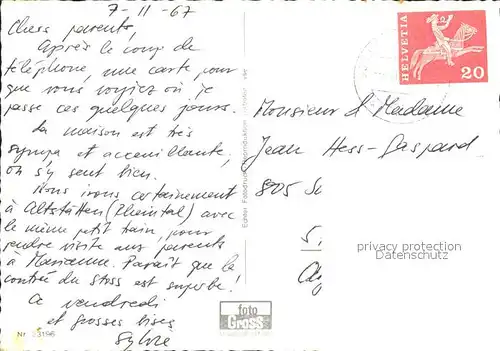 7-11-67
Chers parents,
Après le coup de
téléphone, une carte pour
que vous voyiez où je
passe ces quelques jours.
La maison est très
sympa et accueillante,
on s'y sent bien.
Nous irons certainement
à Altstätten (Rheintal) avec
le même petit train, pour
rendre visite aux parents
à Marianne. Paraît que la
contrée du Stoss est superbe!
A vendredi
et grosses bises
Sylvie
Nr. 23196
Echter Fotodruck
foto
Gross
HELVETIA
20
Monsieur & Madame
Jean Hess-Gaspard
805
privacy protection
Datenschutz